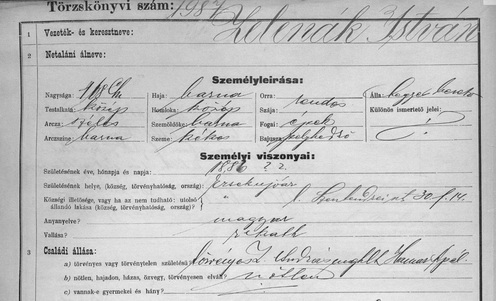 Törzskönyvi szám: 1987
1 Vezeték- és keresztneve: Zelenák István
2 Netaláni álneve:
Személyleirása:
Nagysága: 168 c/m Haja: barna Orra: rendes Álla:
Testalkata: közép Homloka: közép Szája: Különös ismertető jelei:
Arcza: széles Szemöldöke: barna Fogai: épek
Arczszine: barna Szeme: kékes Bajusza:
Személyi viszonyai:
Születésének éve, hónapja és napja: 1886
Születésének helye, (község, törvényhatóság, ország) Érsekujvár
Községi illetősége, vagy ha az nem tudható: utolsó állandó lakása (község, törvényhatóság, ország) " Szentendrei út 30. f. 14.
Anyanyelve: magyar
Vallása:
3 Családi állása:
a) törvényes vagy törvénytelen születésü törvényes, András
b) nőtlen, hajadon, házas, özvegy, törvényesen elvált nőtlen
c) vannak-e gyermekei és hány /